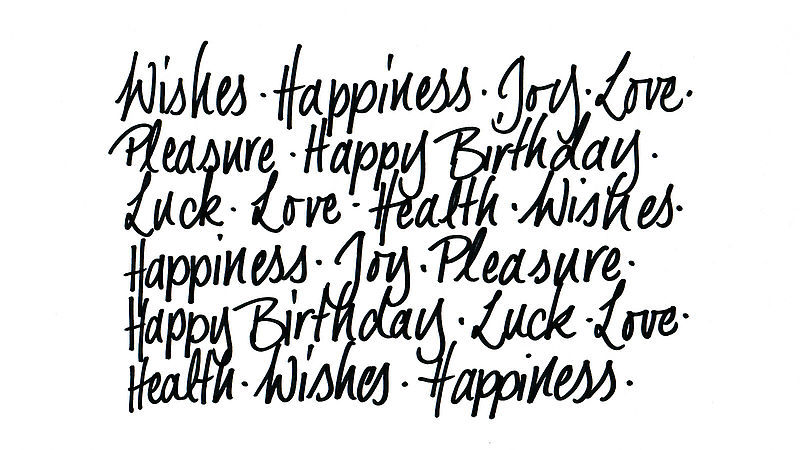 Wishes · Happiness · Joy · Love ·
Pleasure · Happy Birthday ·
Luck · Love · Health · Wishes ·
Happiness · Joy · Pleasure ·
Happy Birthday · Luck · Love ·
Health · Wishes · Happiness ·